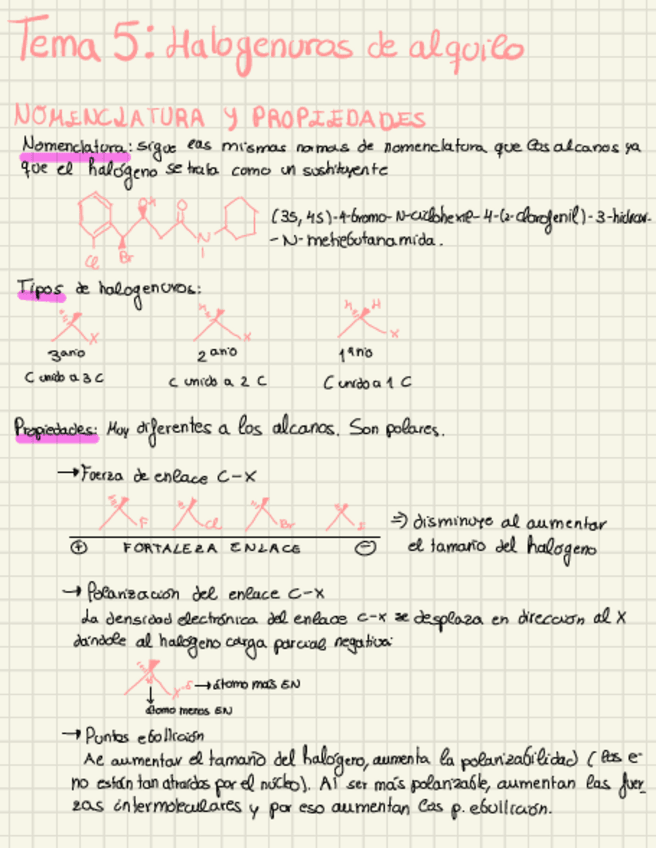 Tema 5: Halogenuros de alquilo
NOMENCLATURA Y PROPIEDADES
Nomenclatura: sigue las mismas normas de nomenclatura que los alcanos ya
que el halógeno se trata como un sustituyente
OH O
(3S, 4S)-4-bromo-N-ciclohexil-4-(2-clorofenil)-3-hidrox-
-N-metilbutanamida.
N
Cl Br
Tipos de halogenuros:
H H H
X X X
3ario 2ario 1ario
C unido a 3 C C unido a 2 C C unido a 1 C
Propiedades: Muy diferentes a los alcanos. Son polares.
→ Fuerza de enlace C-X
F Cl Br I ⇒ disminuye al aumentar
⊕ FORTALEZA ENLACE ⊖ el tamaño del halógeno
→ Polarización del enlace C-X
La densidad electrónica del enlace C-X se desplaza en dirección al X
dándole al halógeno carga parcial negativa:
X → átomo más EN
átomo menos EN
→ Puntos ebullición
Al aumentar el tamaño del halógeno, aumenta la polarizabilidad (los e-
no están tan atraídos por el núcleo). Al ser más polarizable, aumentan las fuer-
zas intermoleculares y por eso aumentan los p. ebullición.